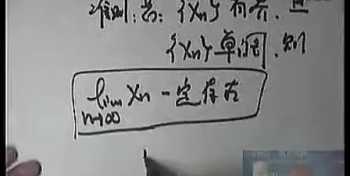 准则:若:{Xn}有界.且
{Xn}单调.则
lim Xn 一定存在
n→∞